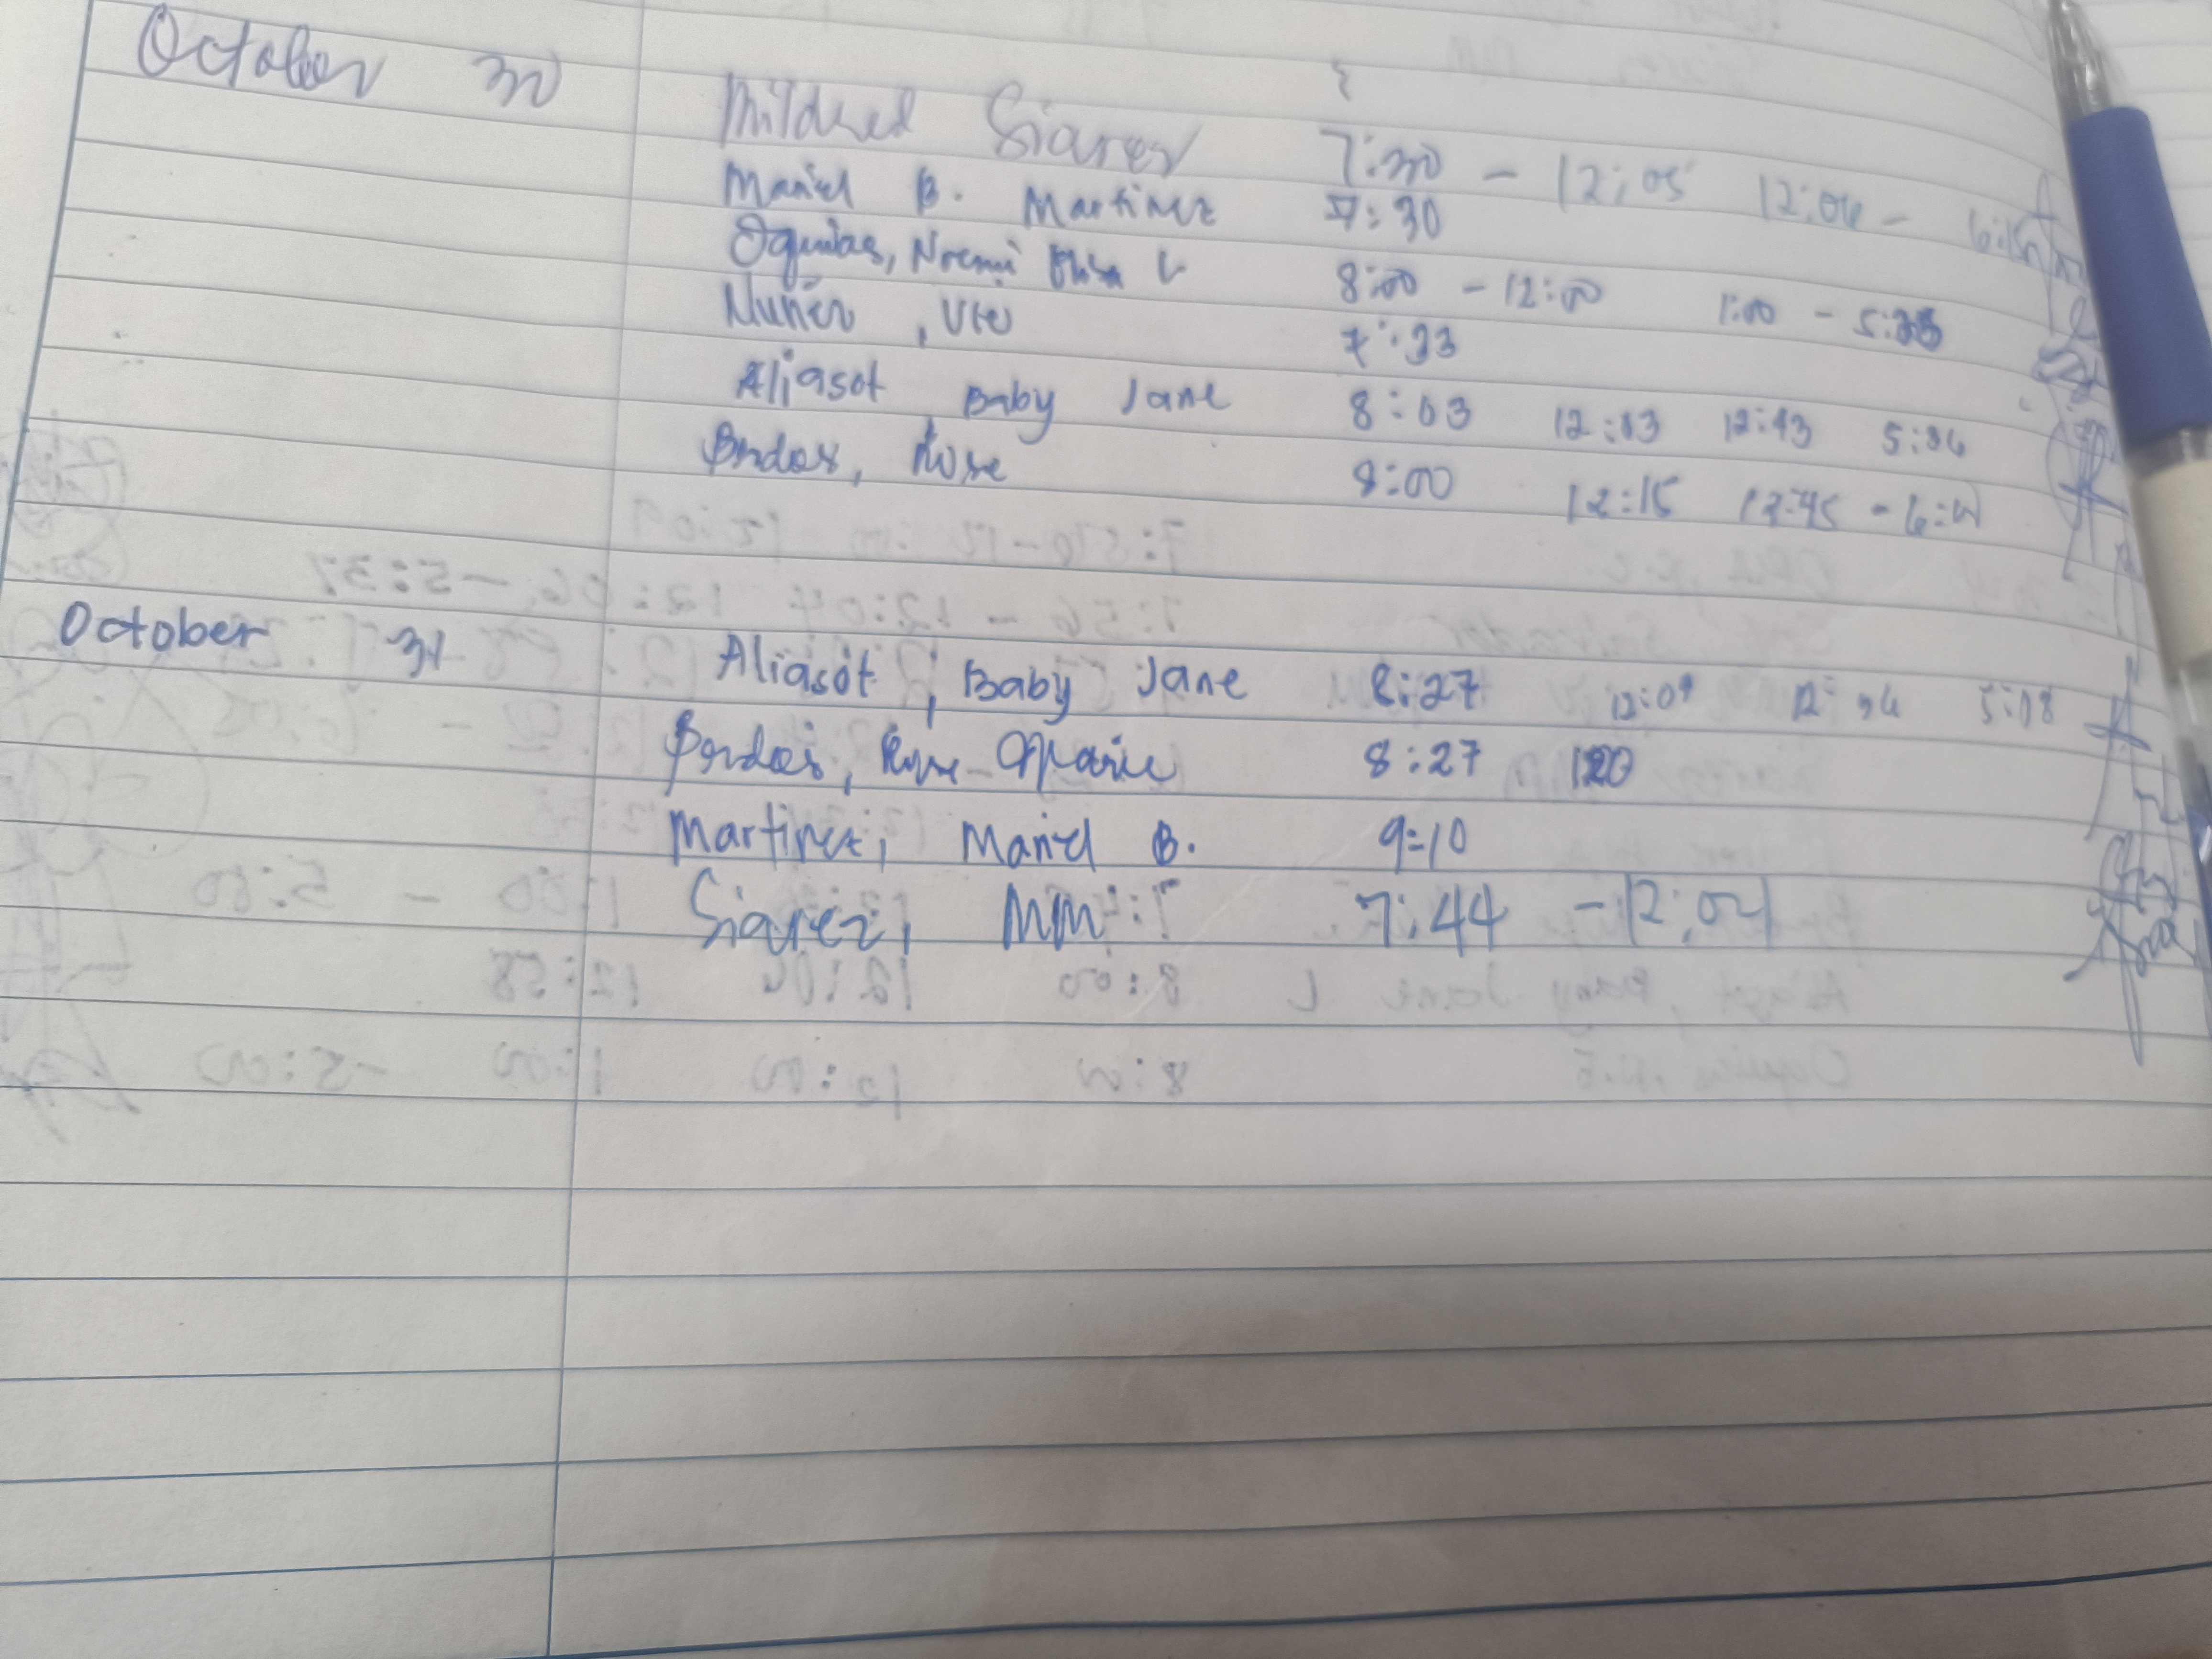 October 30
Mildred Siarez 7:30 - 12:05 12:06 -
Maniel B. Martinez 7:30
Oquias, Noemi L 8:00 - 12:00 1:00 - 5:35
Nuñez, 7:33
Aliasot, Baby Jane 8:03 12:03 12:43 5:06
Bordos, Rose 8:00 12:15 12:45 -
October 31 Aliasot, Baby Jane 8:27 12:09 12:56 5:08
Bordos, Rose Marie 8:27 120
Martinez, Maniel B. 9:10
Siarez, MM 7:44 - 12:04